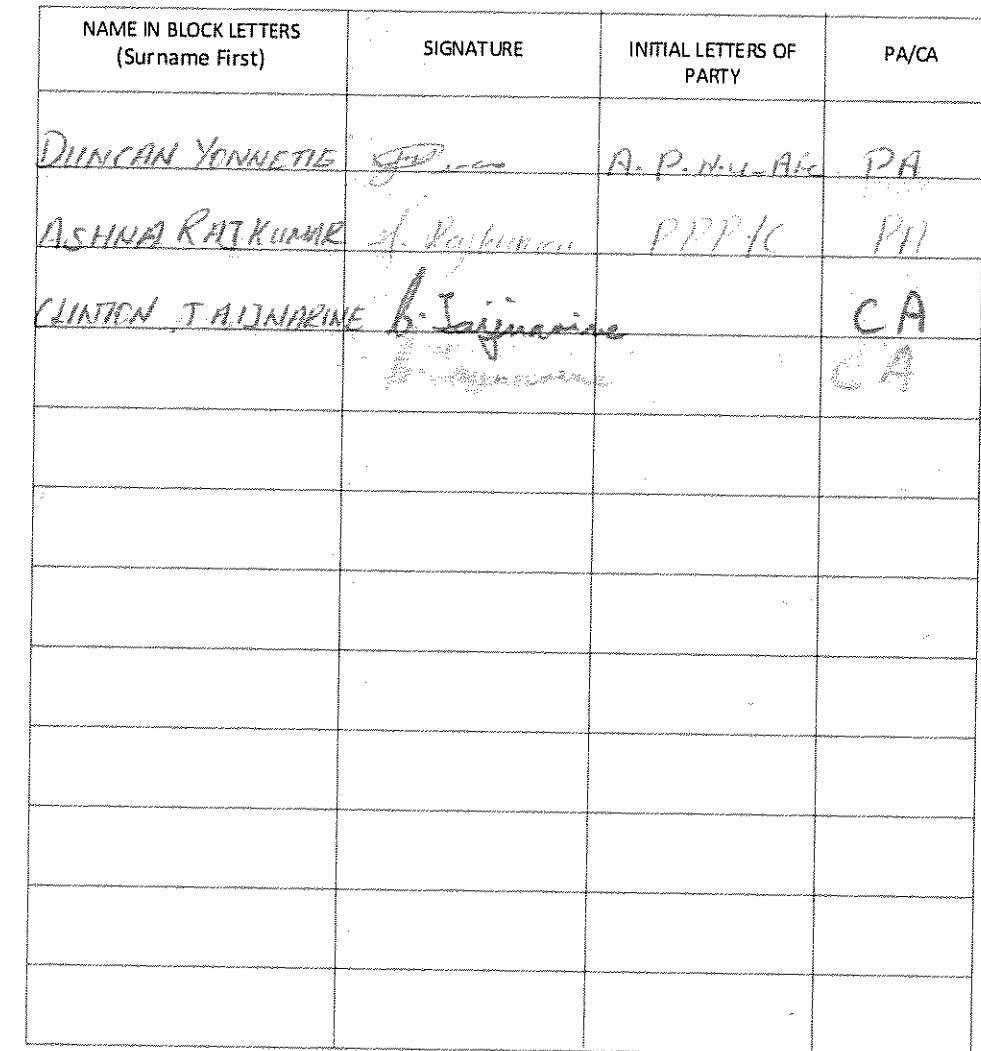 NAME IN BLOCK LETTERS (Surname First) SIGNATURE INITIAL LETTERS OF PARTY PA/CA
DUNCAN YONNETTE A.P.N.U-AFC PA
ASHNA RAJKUMAR A. Rajkumar PPP/C PA
CLINTON JAIJNARINE B. Jaijnarine CA
CA